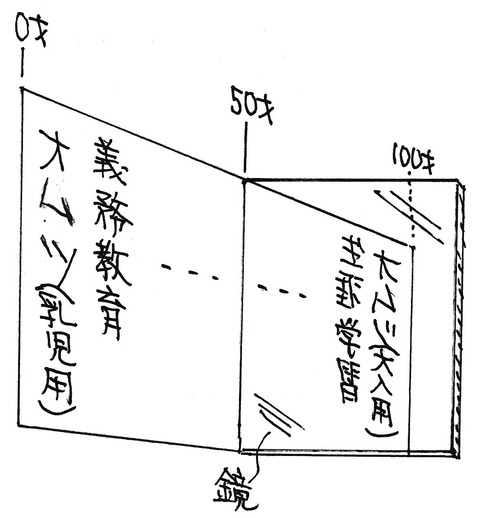 0才
50才
100才
オムツ(乳児用)
義務教育
生涯学習
オムツ(大人用)
鏡